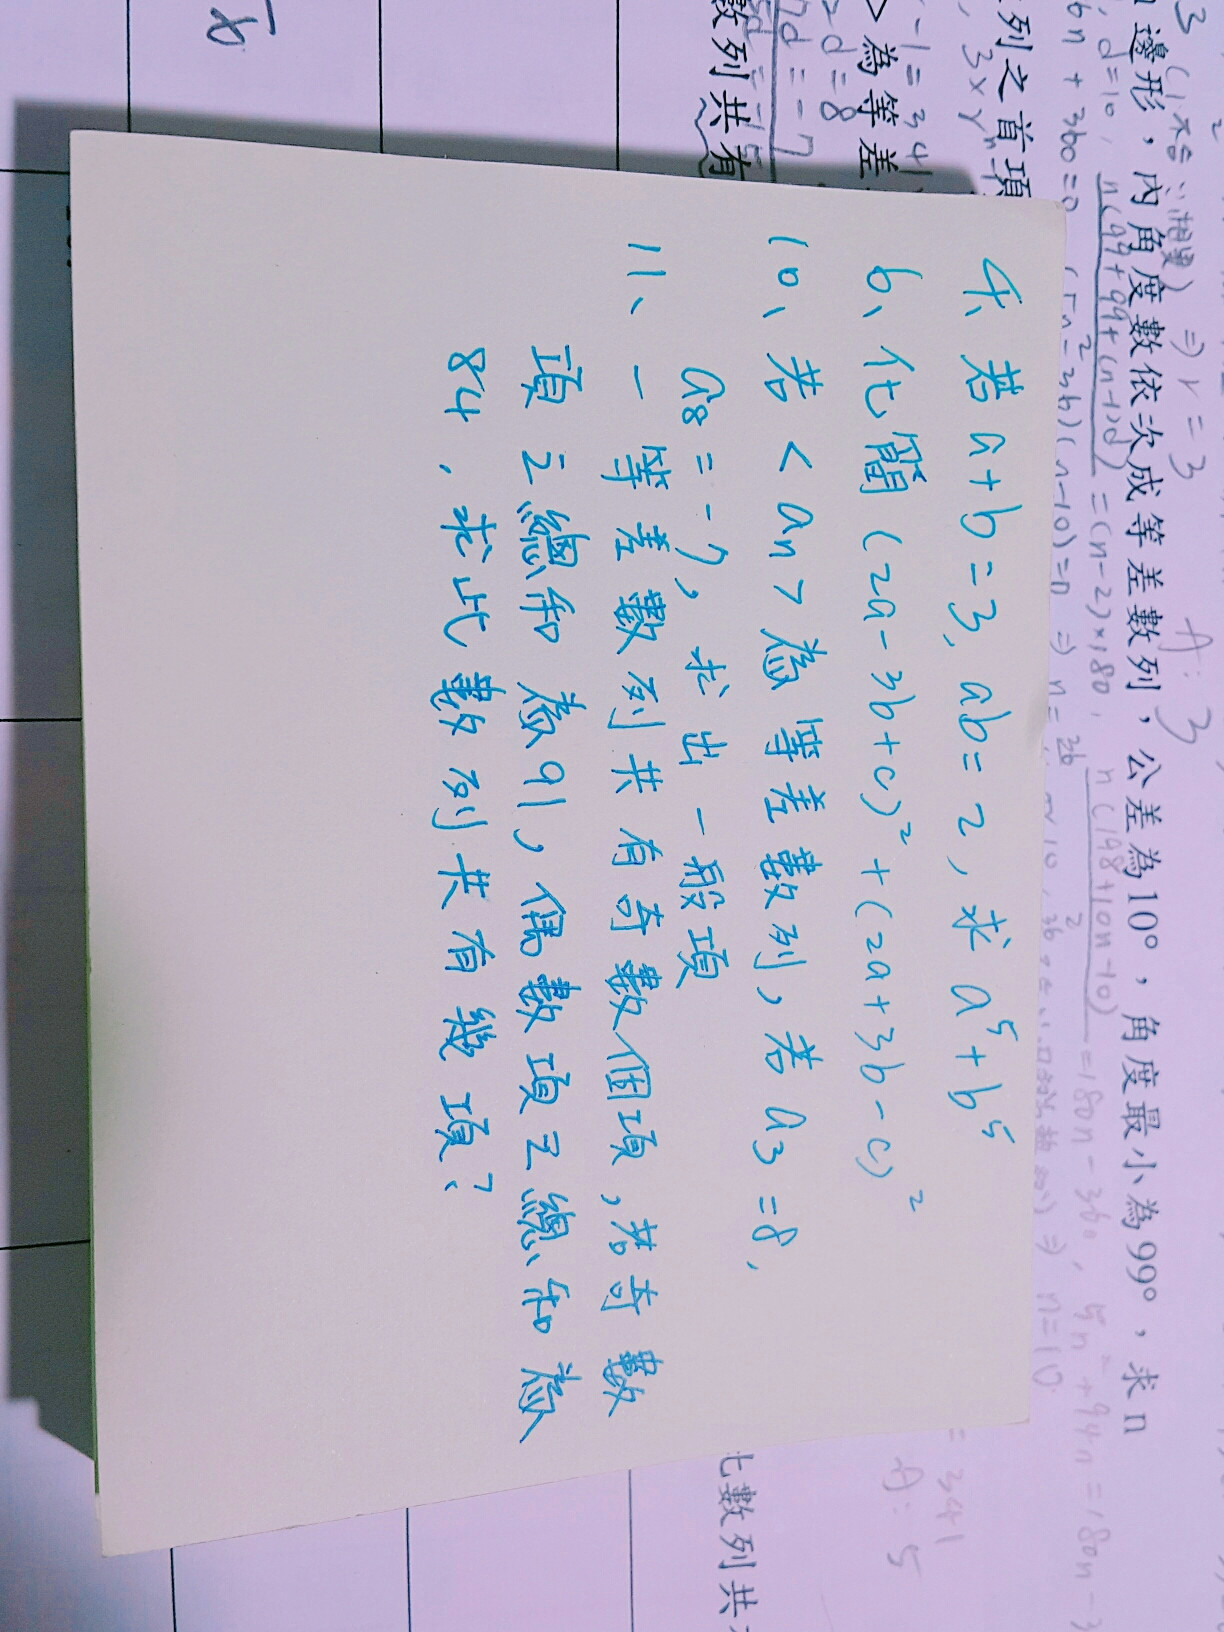 4、若a+b=3, ab=2, 求a⁵+b⁵
6、化簡(2a-3b+c)²+(2a+3b-c)²
10、若<an>為等差數列, 若a3=8,
a8=-7, 求出一般項
11、一等差數列共有奇數個項, 若奇數
項之總和為91, 偶數項之總和為
84, 求此數列共有幾項?
邊形，內角度數依次成等差數列，公差為10°，角度最小為99°，求n
n(99+99+(n-1)d)
=(n-2)×180,
n(198+10n-10)
=180n-360, 5n²+94n=180n-3
⇒ r=3
A: 3
列之首項
>為等差
數列共有
= 341
A: 5
此數列共